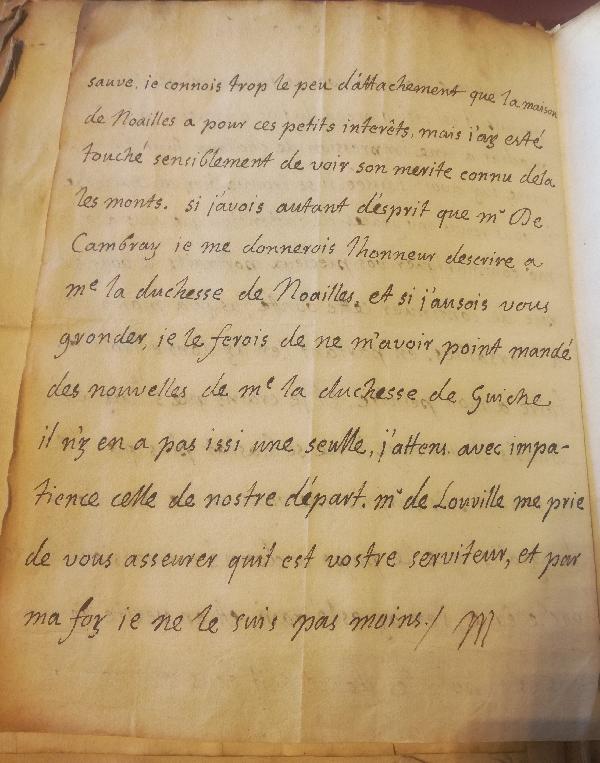 sauve, ie connois trop le peu d'attachement que la maison
de Noailles a pour ces petits interêts, mais i'ay esté
touché sensiblement de voir son merite connu dela
les monts. si j'avois autant d'esprit que mr De
Cambray ie me donnerois lhonneur descrire a
me la duchesse de Noailles, et si j'ausois vous
gronder, ie le ferois de ne m'avoir point mandé
des nouvelles de me la duchesse de Guiche
il n'y en a pas issi une seulle, j'attens avec impa-
tience celle de nostre départ. mr de Louville me prie
de vous asseurer quil est vostre serviteur, et par
ma foy ie ne le suis pas moins./ M